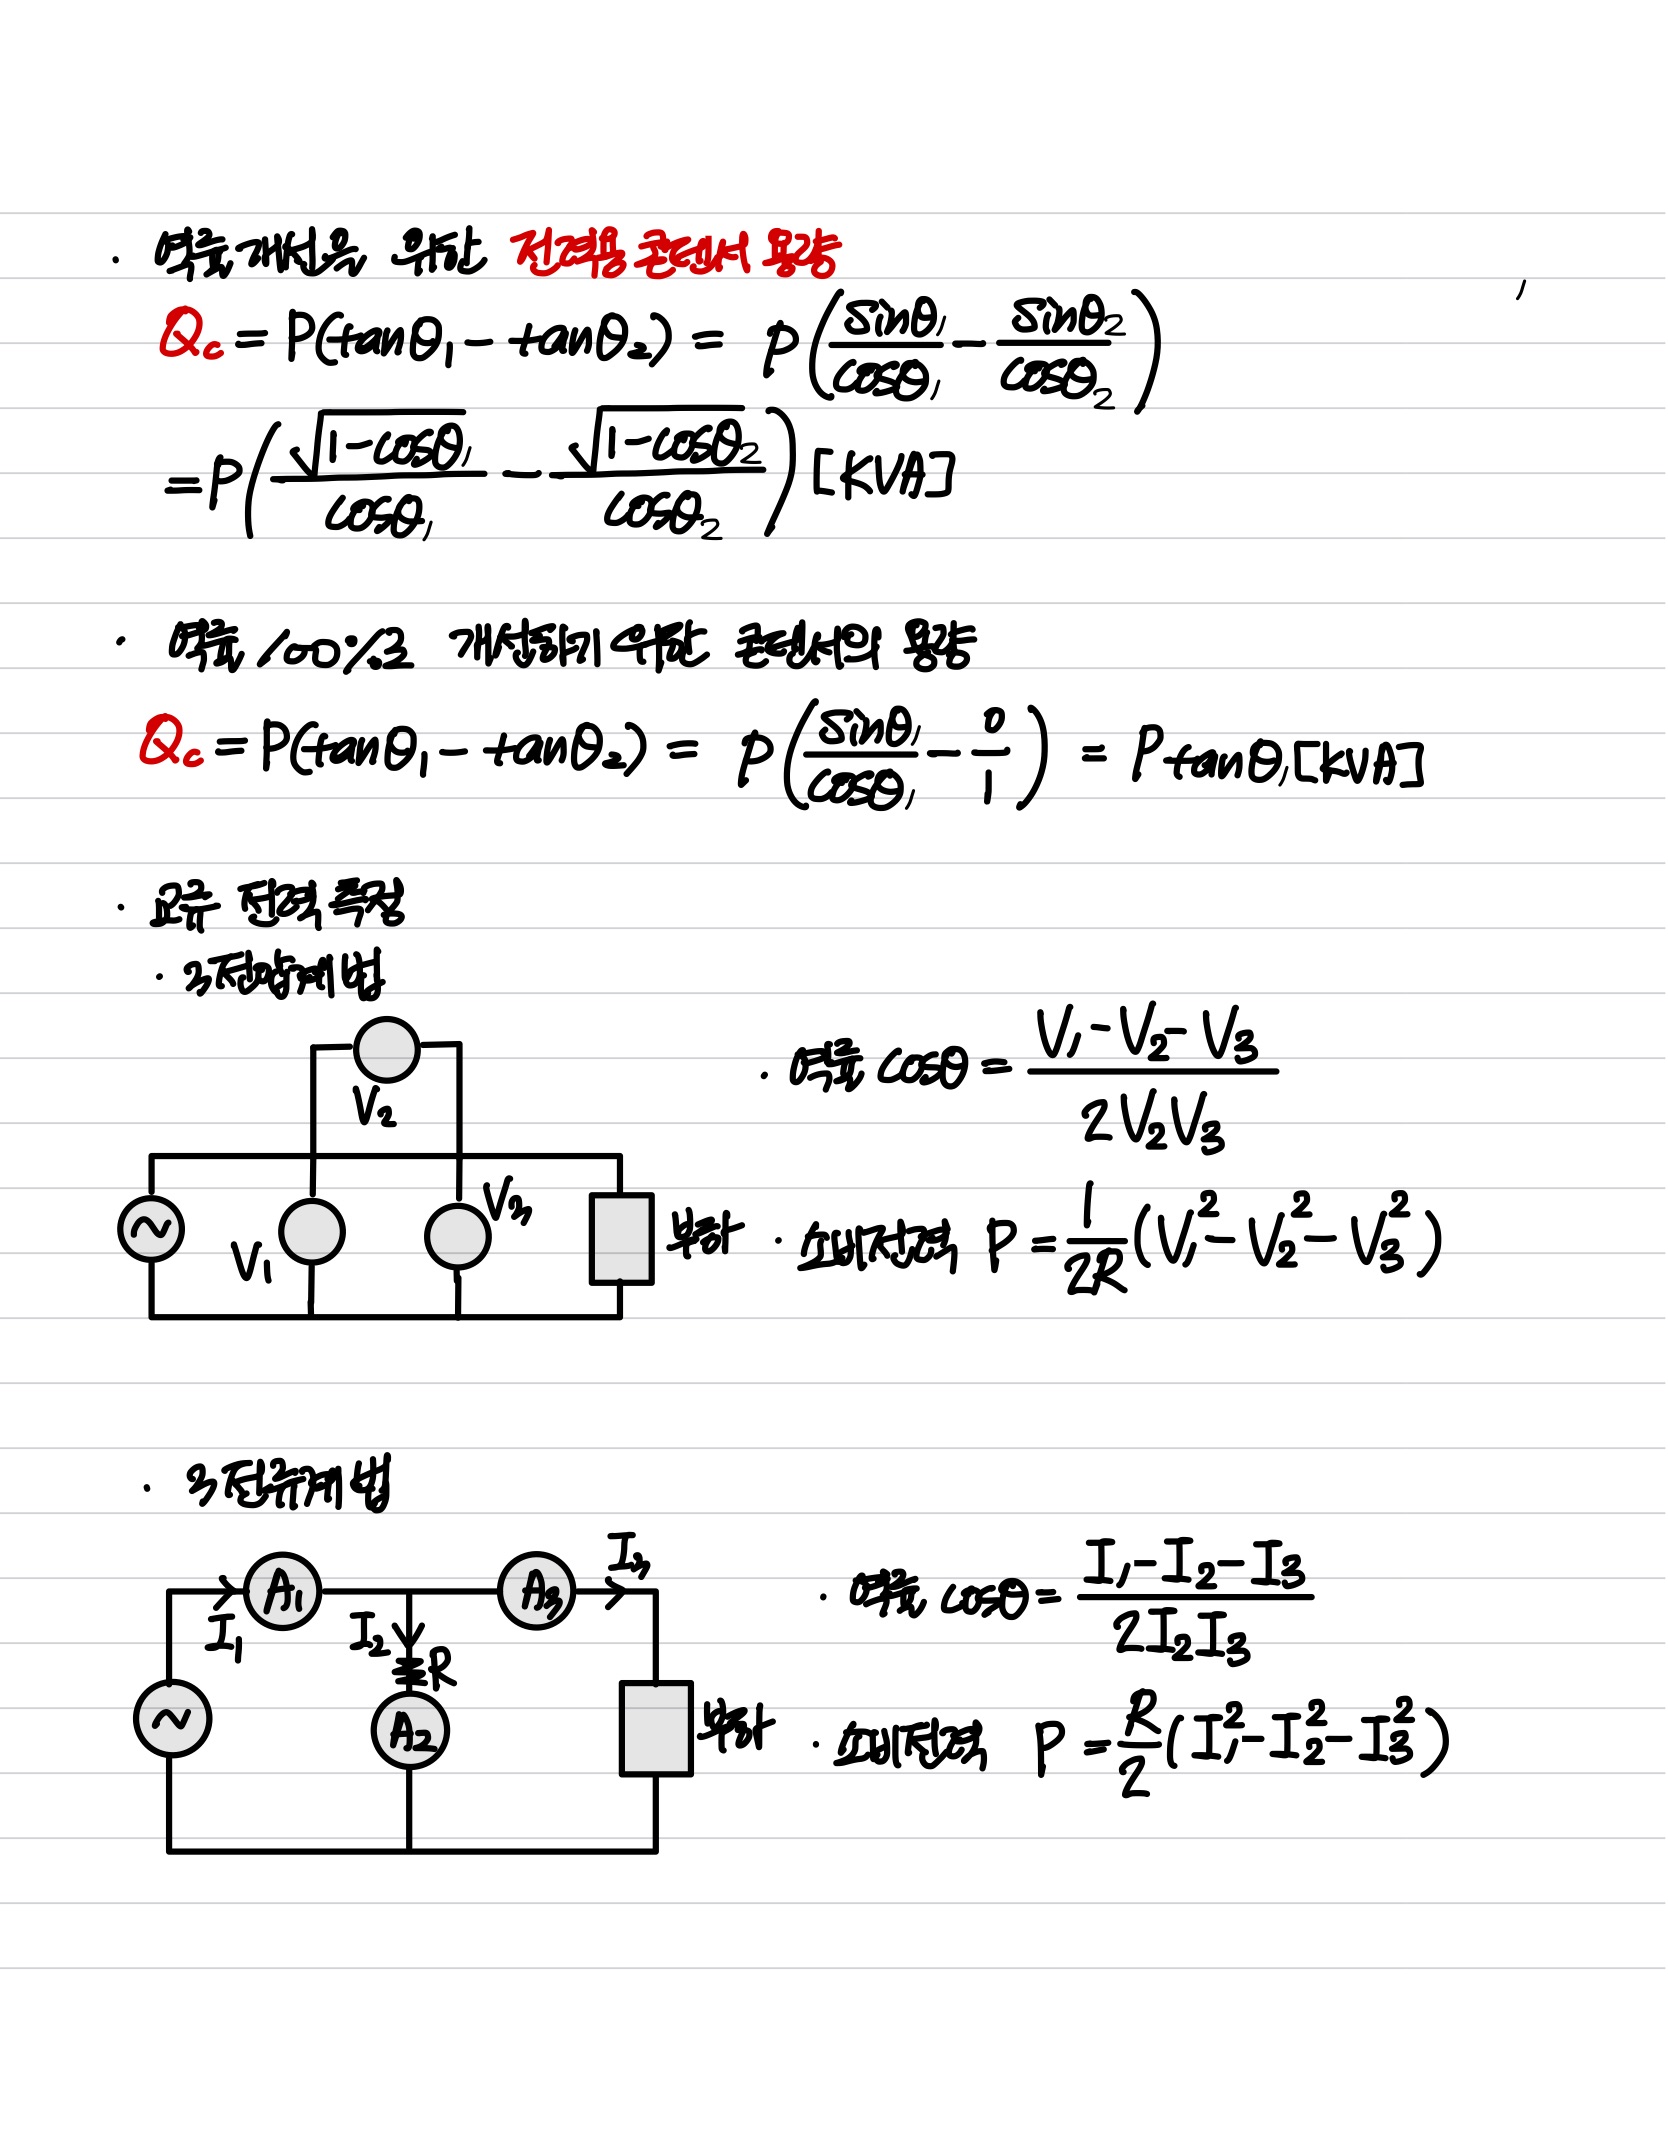 · 역률개선을 위한 전력용 콘덴서 용량
Qc = P(tanθ₁ - tanθ₂) = P(sinθ₁/cosθ₁ - sinθ₂/cosθ₂)
= P(√(1-cosθ₁)/cosθ₁ - √(1-cosθ₂)/cosθ₂) [KVA]
· 역률 100%로 개선하기 위한 콘덴서의 용량
Qc = P(tanθ₁ - tanθ₂) = P(sinθ₁/cosθ₁ - 0/1) = P tanθ₁ [KVA]
· 교류 전력 측정
· 3전압계법
V₂
V₁
V₃
부하
· 역률 cosθ = (V₁ - V₂ - V₃)/(2V₂V₃)
· 소비전력 P = 1/2R (V₁² - V₂² - V₃²)
· 3전류계법
I₁
A₁
I₂
R
A₂
A₃
I₃
부하
· 역률 cosθ = (I₁ - I₂ - I₃)/(2I₂I₃)
· 소비전력 P = R/2 (I₁² - I₂² - I₃²)